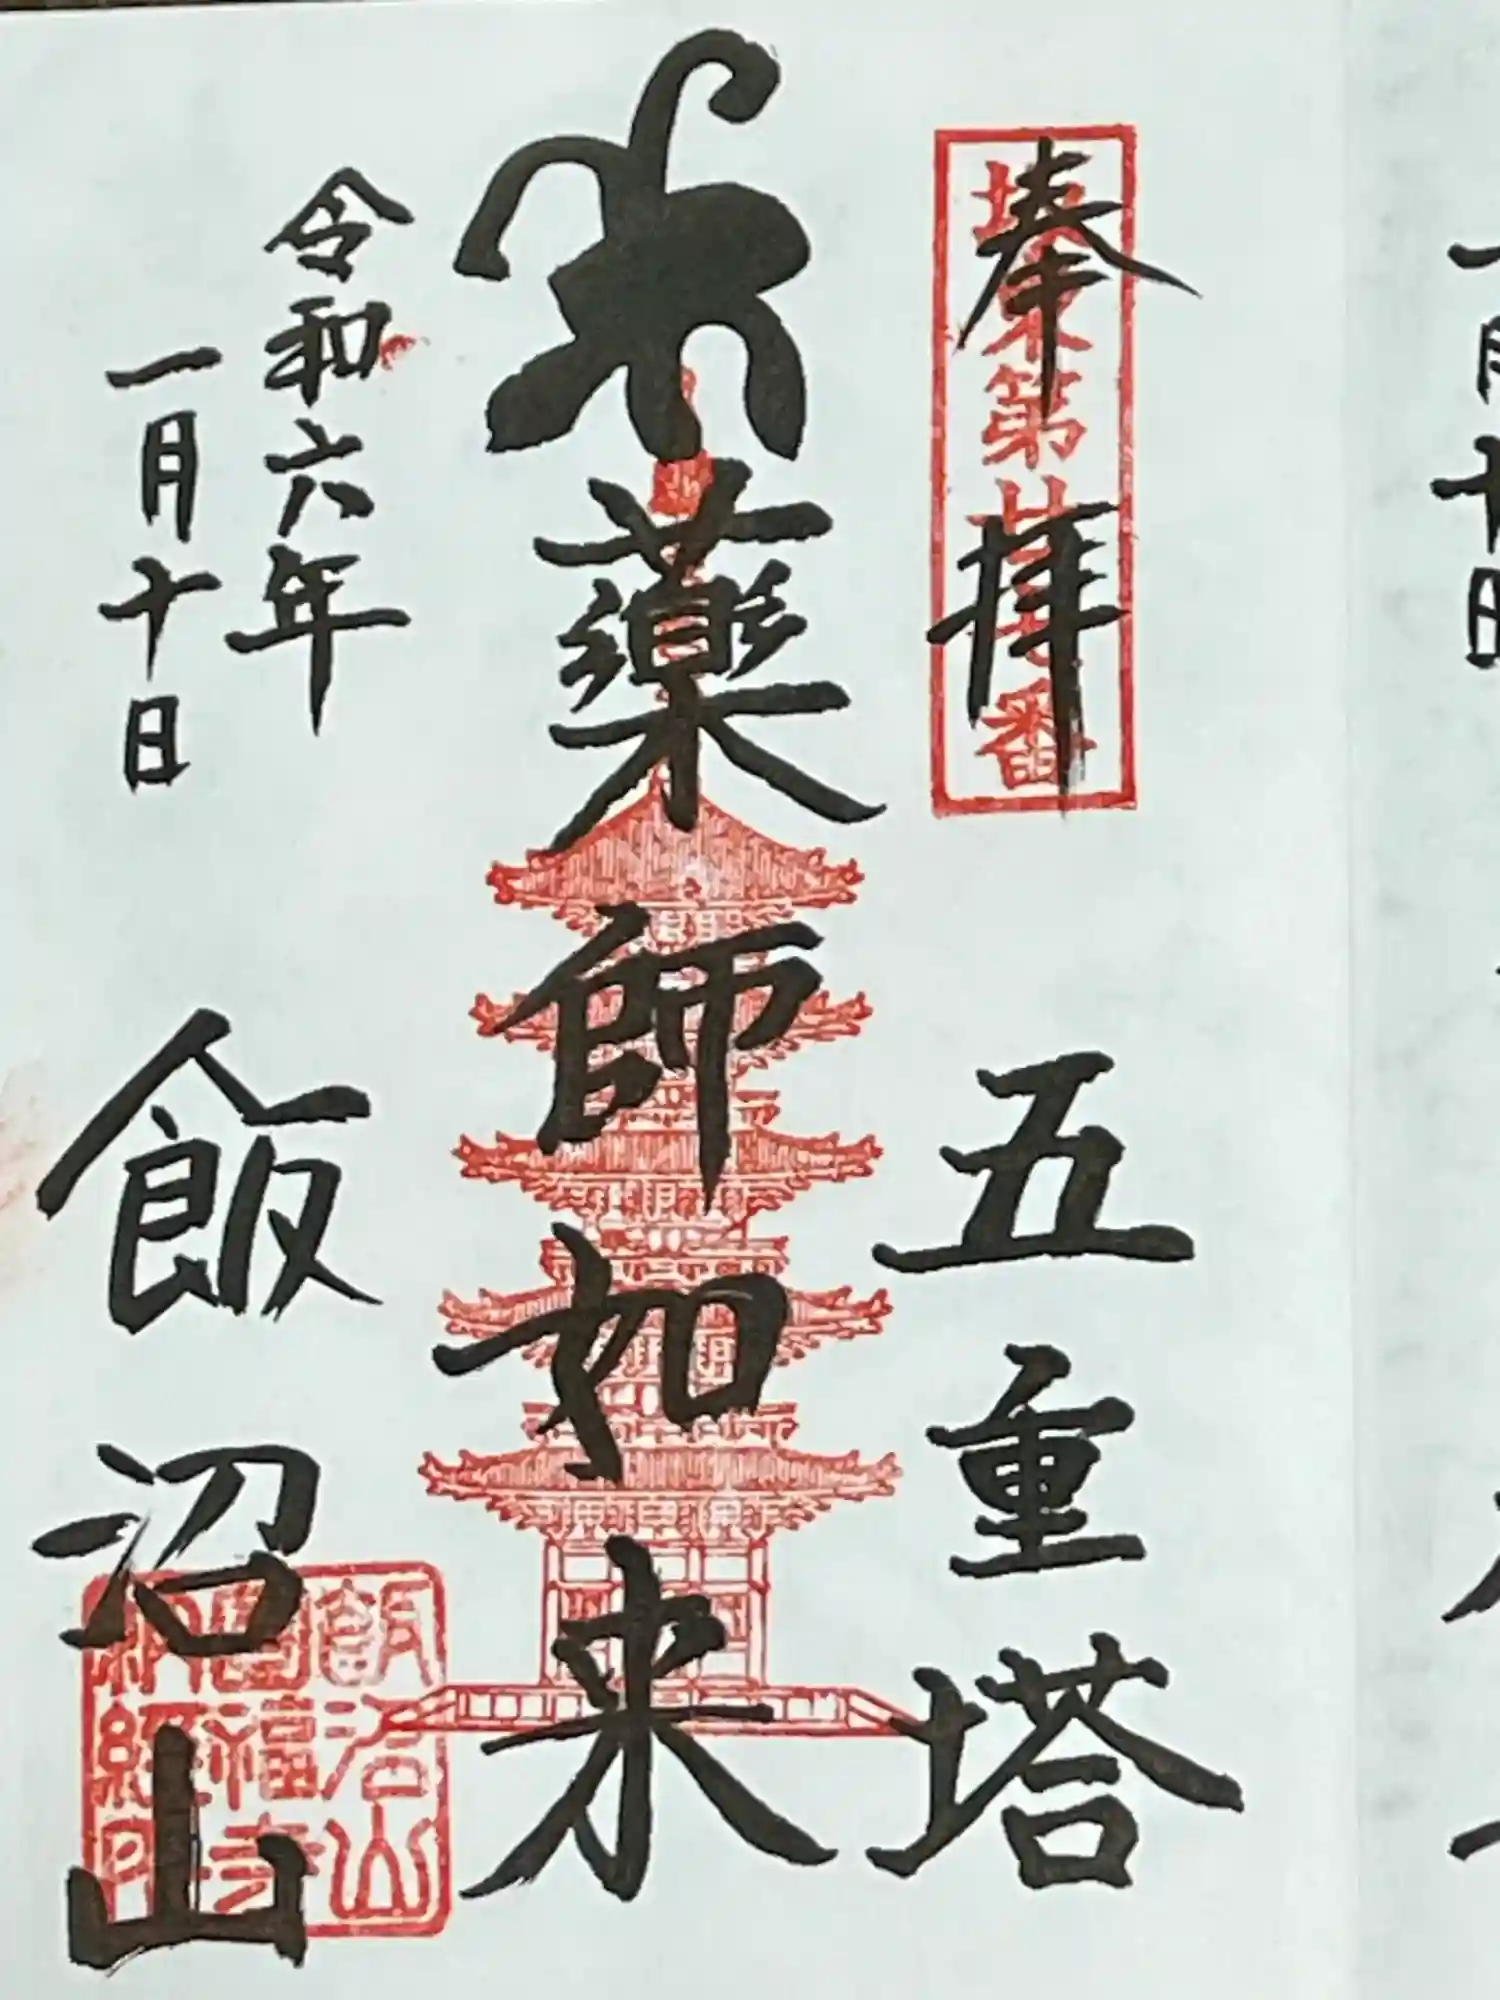 奉拝
坂東第廿七番
五重塔
薬師如来
令和六年
一月十日
飯沼山
飯沼山
圓福寺
納経印